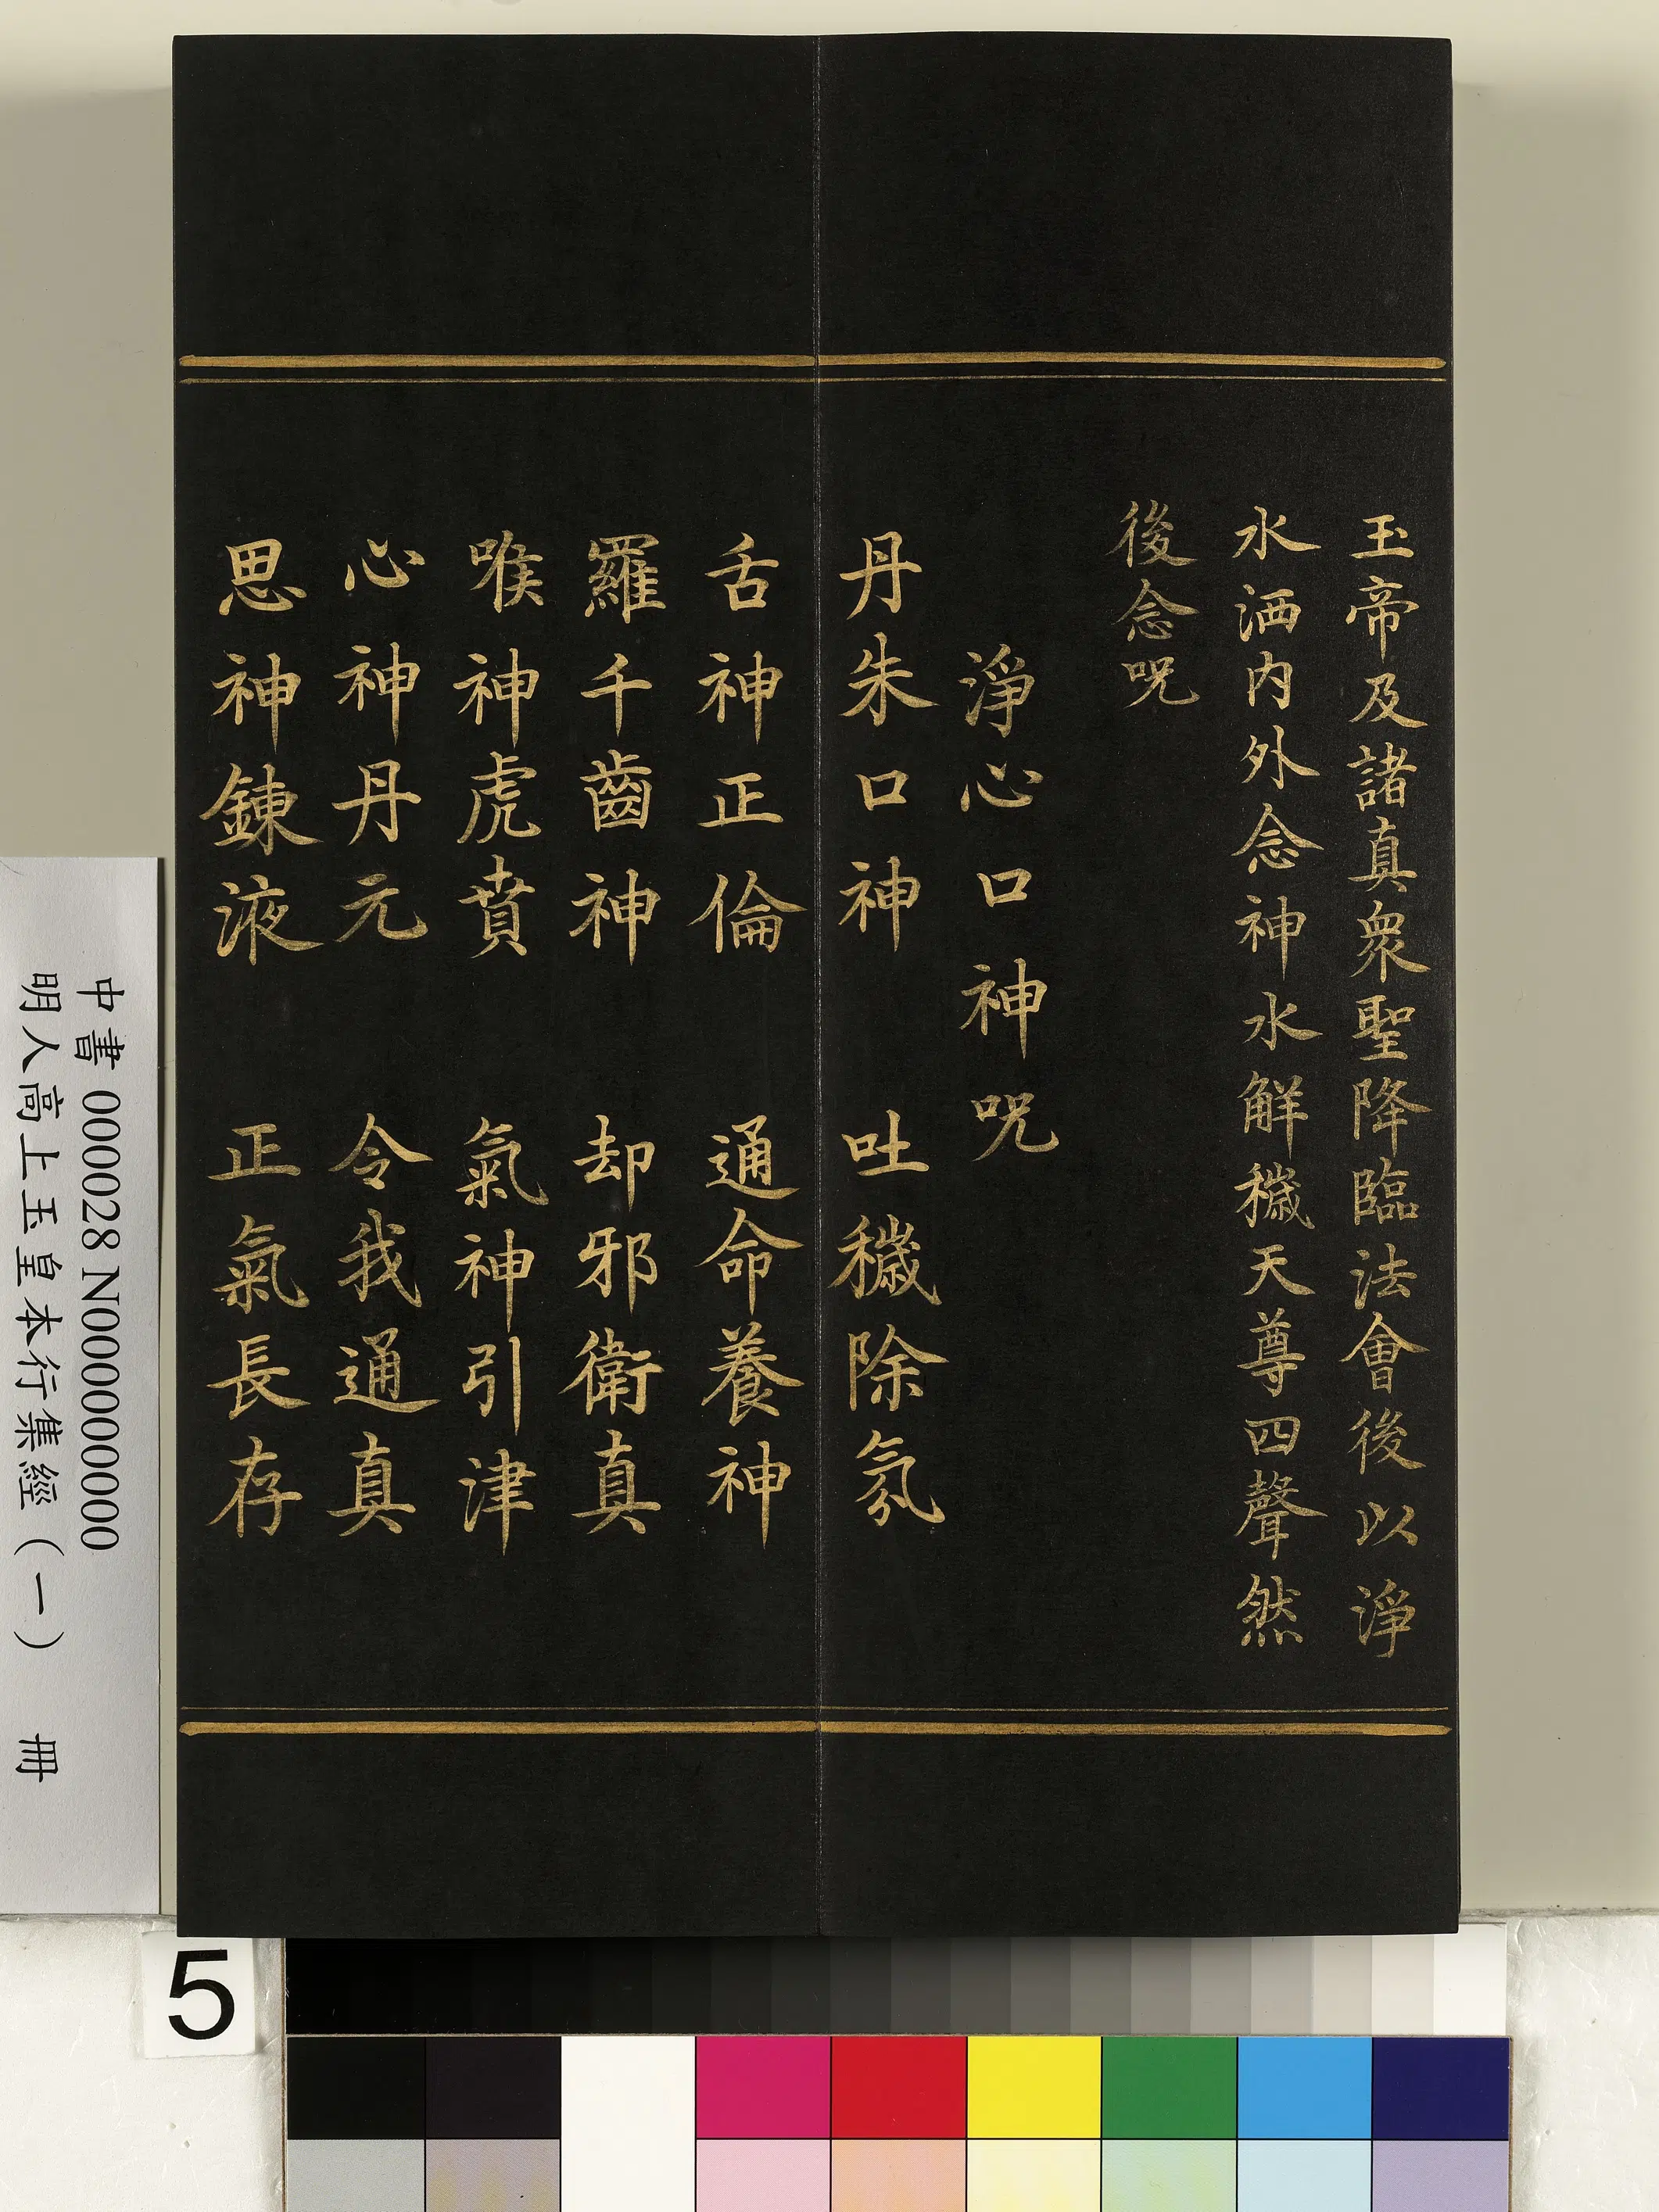 玉帝及諸真衆聖降臨法會後以淨
水洒内外念神水解穢天尊四聲然
後念呪
淨心口神呪
丹朱口神 吐穢除氛
舌神正倫 通命養神
羅千齒神 却邪衛真
喉神虎賁 氣神引津
心神丹元 令我通真
思神鍊液 正氣長存
中書 000028 N000000000
明人高上玉皇本行集經（一） 冊
5